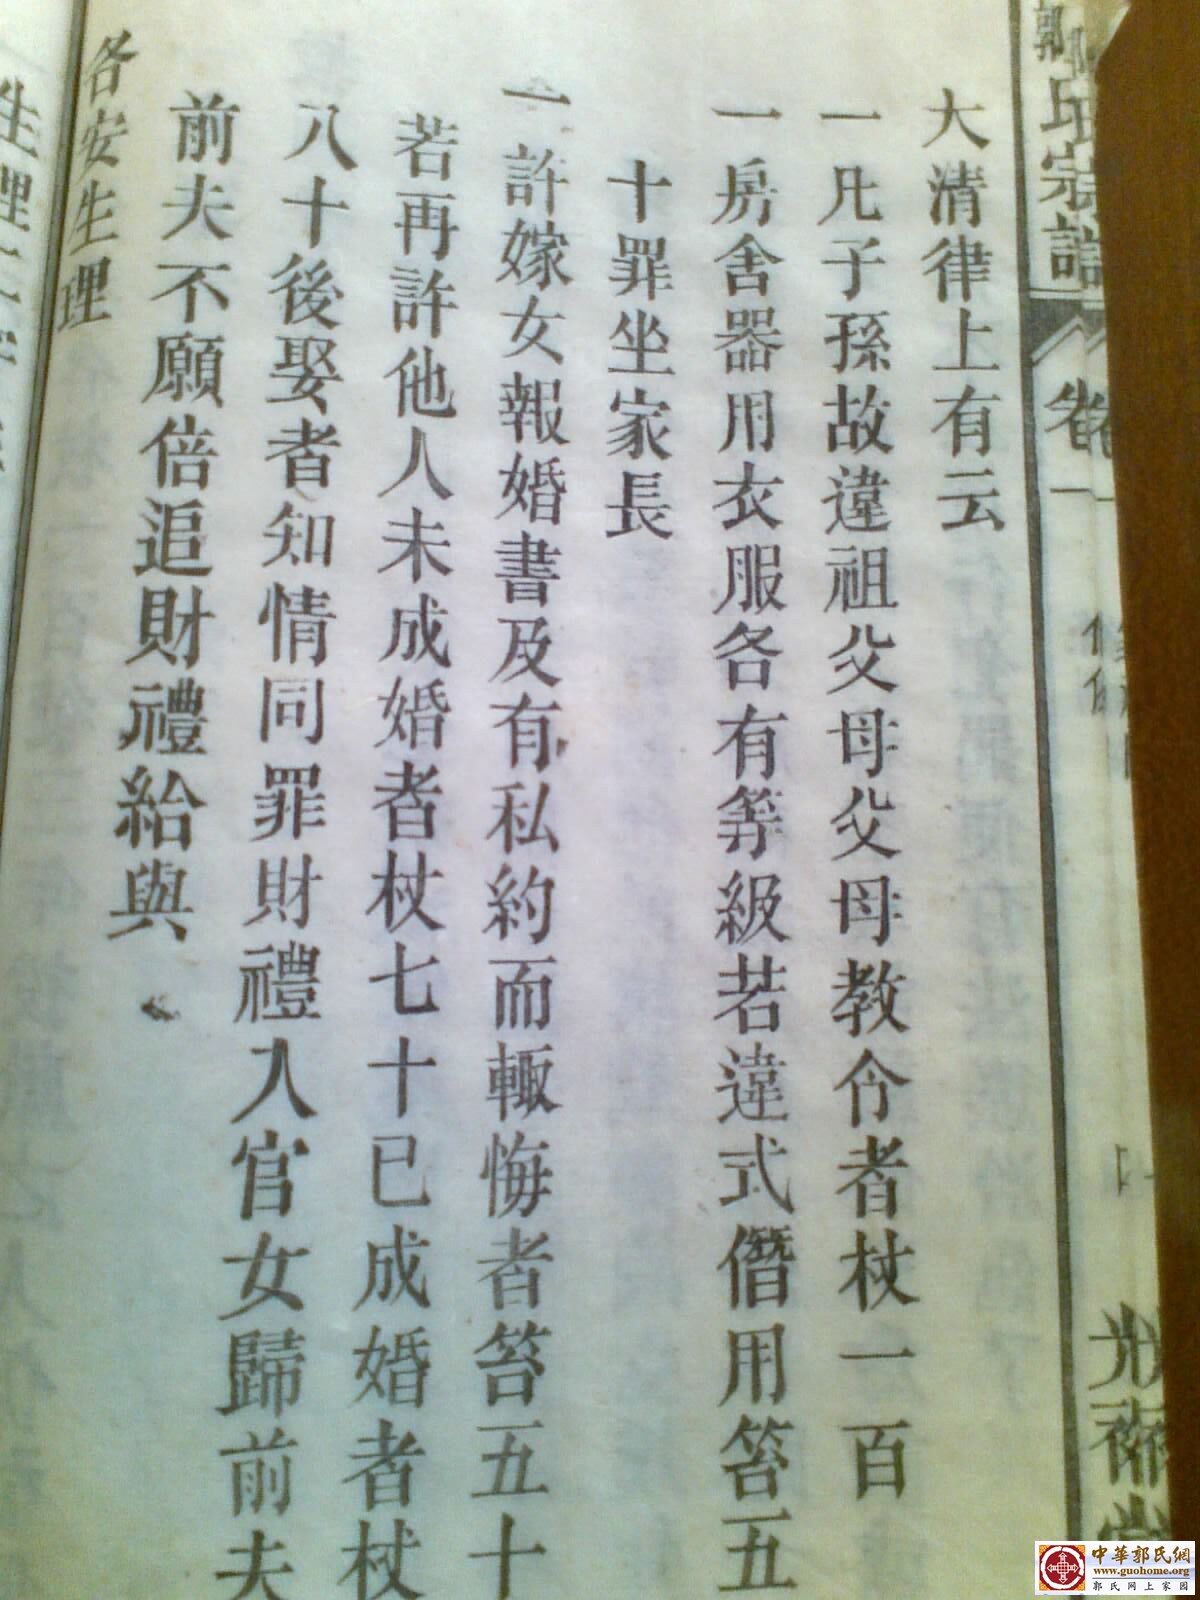 郭氏宗譜
卷一
大清律上有云
一凡子孫故違祖父母父母教令者杖一百
一房舍器用衣服各有等級若違式僭用笞五
十罪坐家長
一許嫁女報婚書及有私約而輙悔者笞五十
若再許他人未成婚者杖七十已成婚者杖
八十後娶者知情同罪財禮入官女歸前夫
前夫不願倍追財禮給與
各安生理
生理
中華郭氏網
www.guohome.org
郭氏网上家园